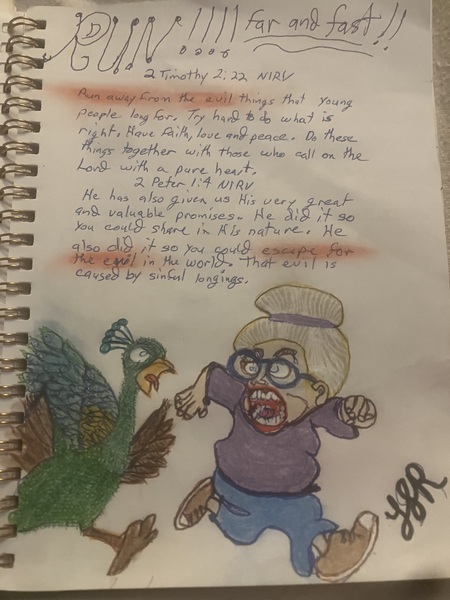 RUN!!!! far and fast!!
2 Timothy 2:22 NIRV
Run away from the evil things that young
people long for. Try hard to do what is
right. Have faith, love and peace. Do these
things together with those who call on the
Lord with a pure heart.
2 Peter 1:4 NIRV
He has also given us His very great
and valuable promises. He did it so
you could share in His nature. He
also did it so you could escape for
the evil in the world. That evil is
caused by sinful longings.